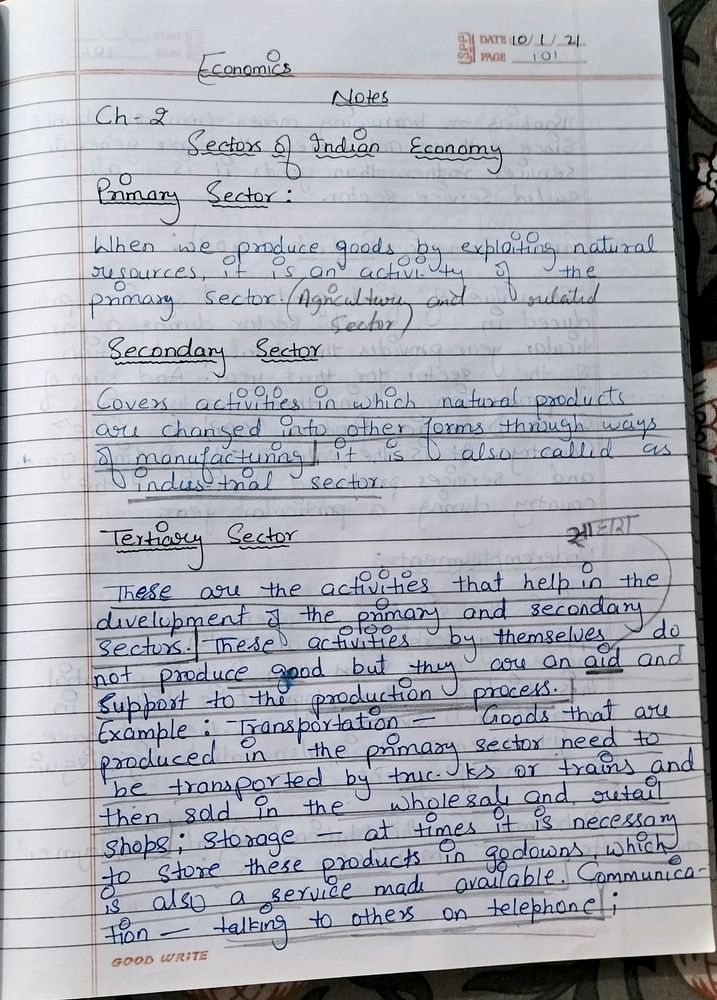 SPP DATE 10/1/21
PAGE 101
Economics
Notes
Ch - 2
Sectors of Indian Economy
Primary Sector :
When we produce goods by exploiting natural
resources, it is an activity of the
primary sector. (Agriculture and related
Sector)
Secondary Sector
Covers activities in which natural products
are changed into other forms through ways
of manufacturing | it is also called as
industrial sector
Tertiary Sector
सहारा
These are the activities that help in the
development of the primary and secondary
sectors. | These activities by themselves do
not produce good but they are an aid and
support to the production process. |
Example : Transportation — Goods that are
produced in the primary sector need to
be transported by truc-ks or trains and
then sold in the wholesale and retail
shops ; storage — at times it is necessary
to store these products in godowns, which
is also a service made available. Communica-
tion — talking to others on telephone ;
GOOD WRITE